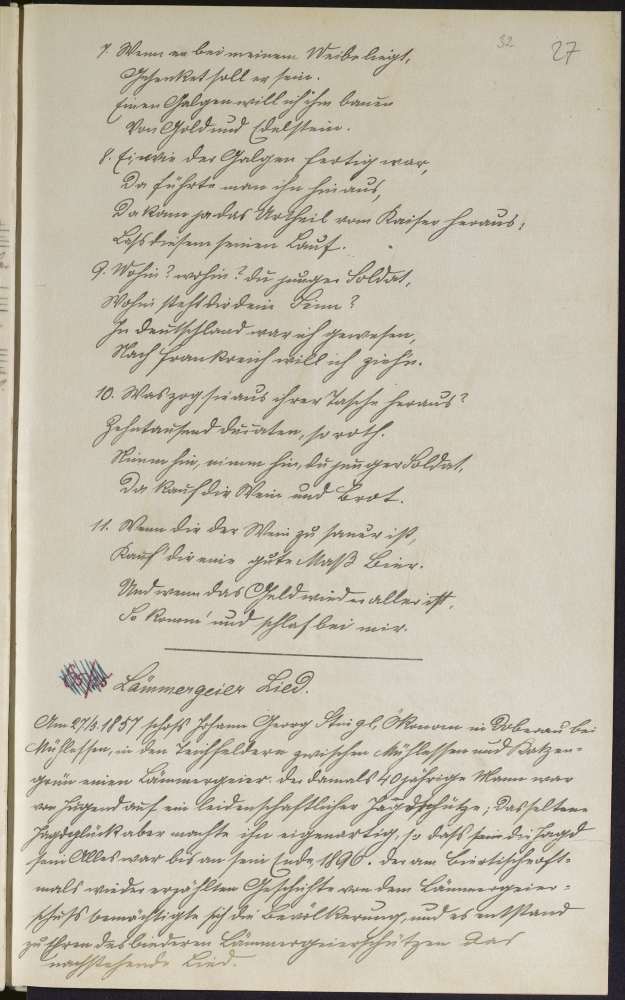 32 27
7. Wenn er bei meinem Weibe liegt,
Gehenket soll er sein.
Einen Galgen will ich ihm bauen
Von Gold und Edelstein.
8. Ei wie der Galgen fertig war,
Da führte man ihn hinaus,
Da kam ja das Urtheil vom Kaiser heraus:
Laßt diesem seinen Lauf.
9. Wohin? wohin? du junger Soldat,
Wohin steht dir dein Sinn?
In Deutschland war ich gewesen,
Nach Frankreich will ich ziehn.
10. Was zog sie aus ihrer Tasche heraus?
Zehntausend Ducaten, so roth.
Nimm hin, nimm hin, du junger Soldat,
Da kauf dir Wein und Brot.
11. Wenn dir der Wein zu sauer ist,
Kauf dir eine gute Maß Bier.
Und wenn das Geld wieder aller ist,
So komm' und schlaf bei mir.
Lämmergeier Lied.
Am 27/3. 1857 schoß Johann Georg Steigl, Ökonom in Doberau bei
Mühlessen, in den Teichfeldern zwischen Mühlessen und Katzen-
grün einen Lämmergeier. Der damals 40jährige Mann war
von Jugend auf ein leidenschaftlicher Jagdschütze; das seltene
Jagdglück aber machte ihn eigenartig, so daß sein die Jagd
sein Alles war bis an sein Ende 1890. Der am Biertische oft-
mals wieder erzählten Geschichte von dem Lämmergeier-
schuß bemächtigte sich die Bevölkerung, und es entstand
zu Ehren des biederen Lämmergeierschützen das
nachstehende Lied.